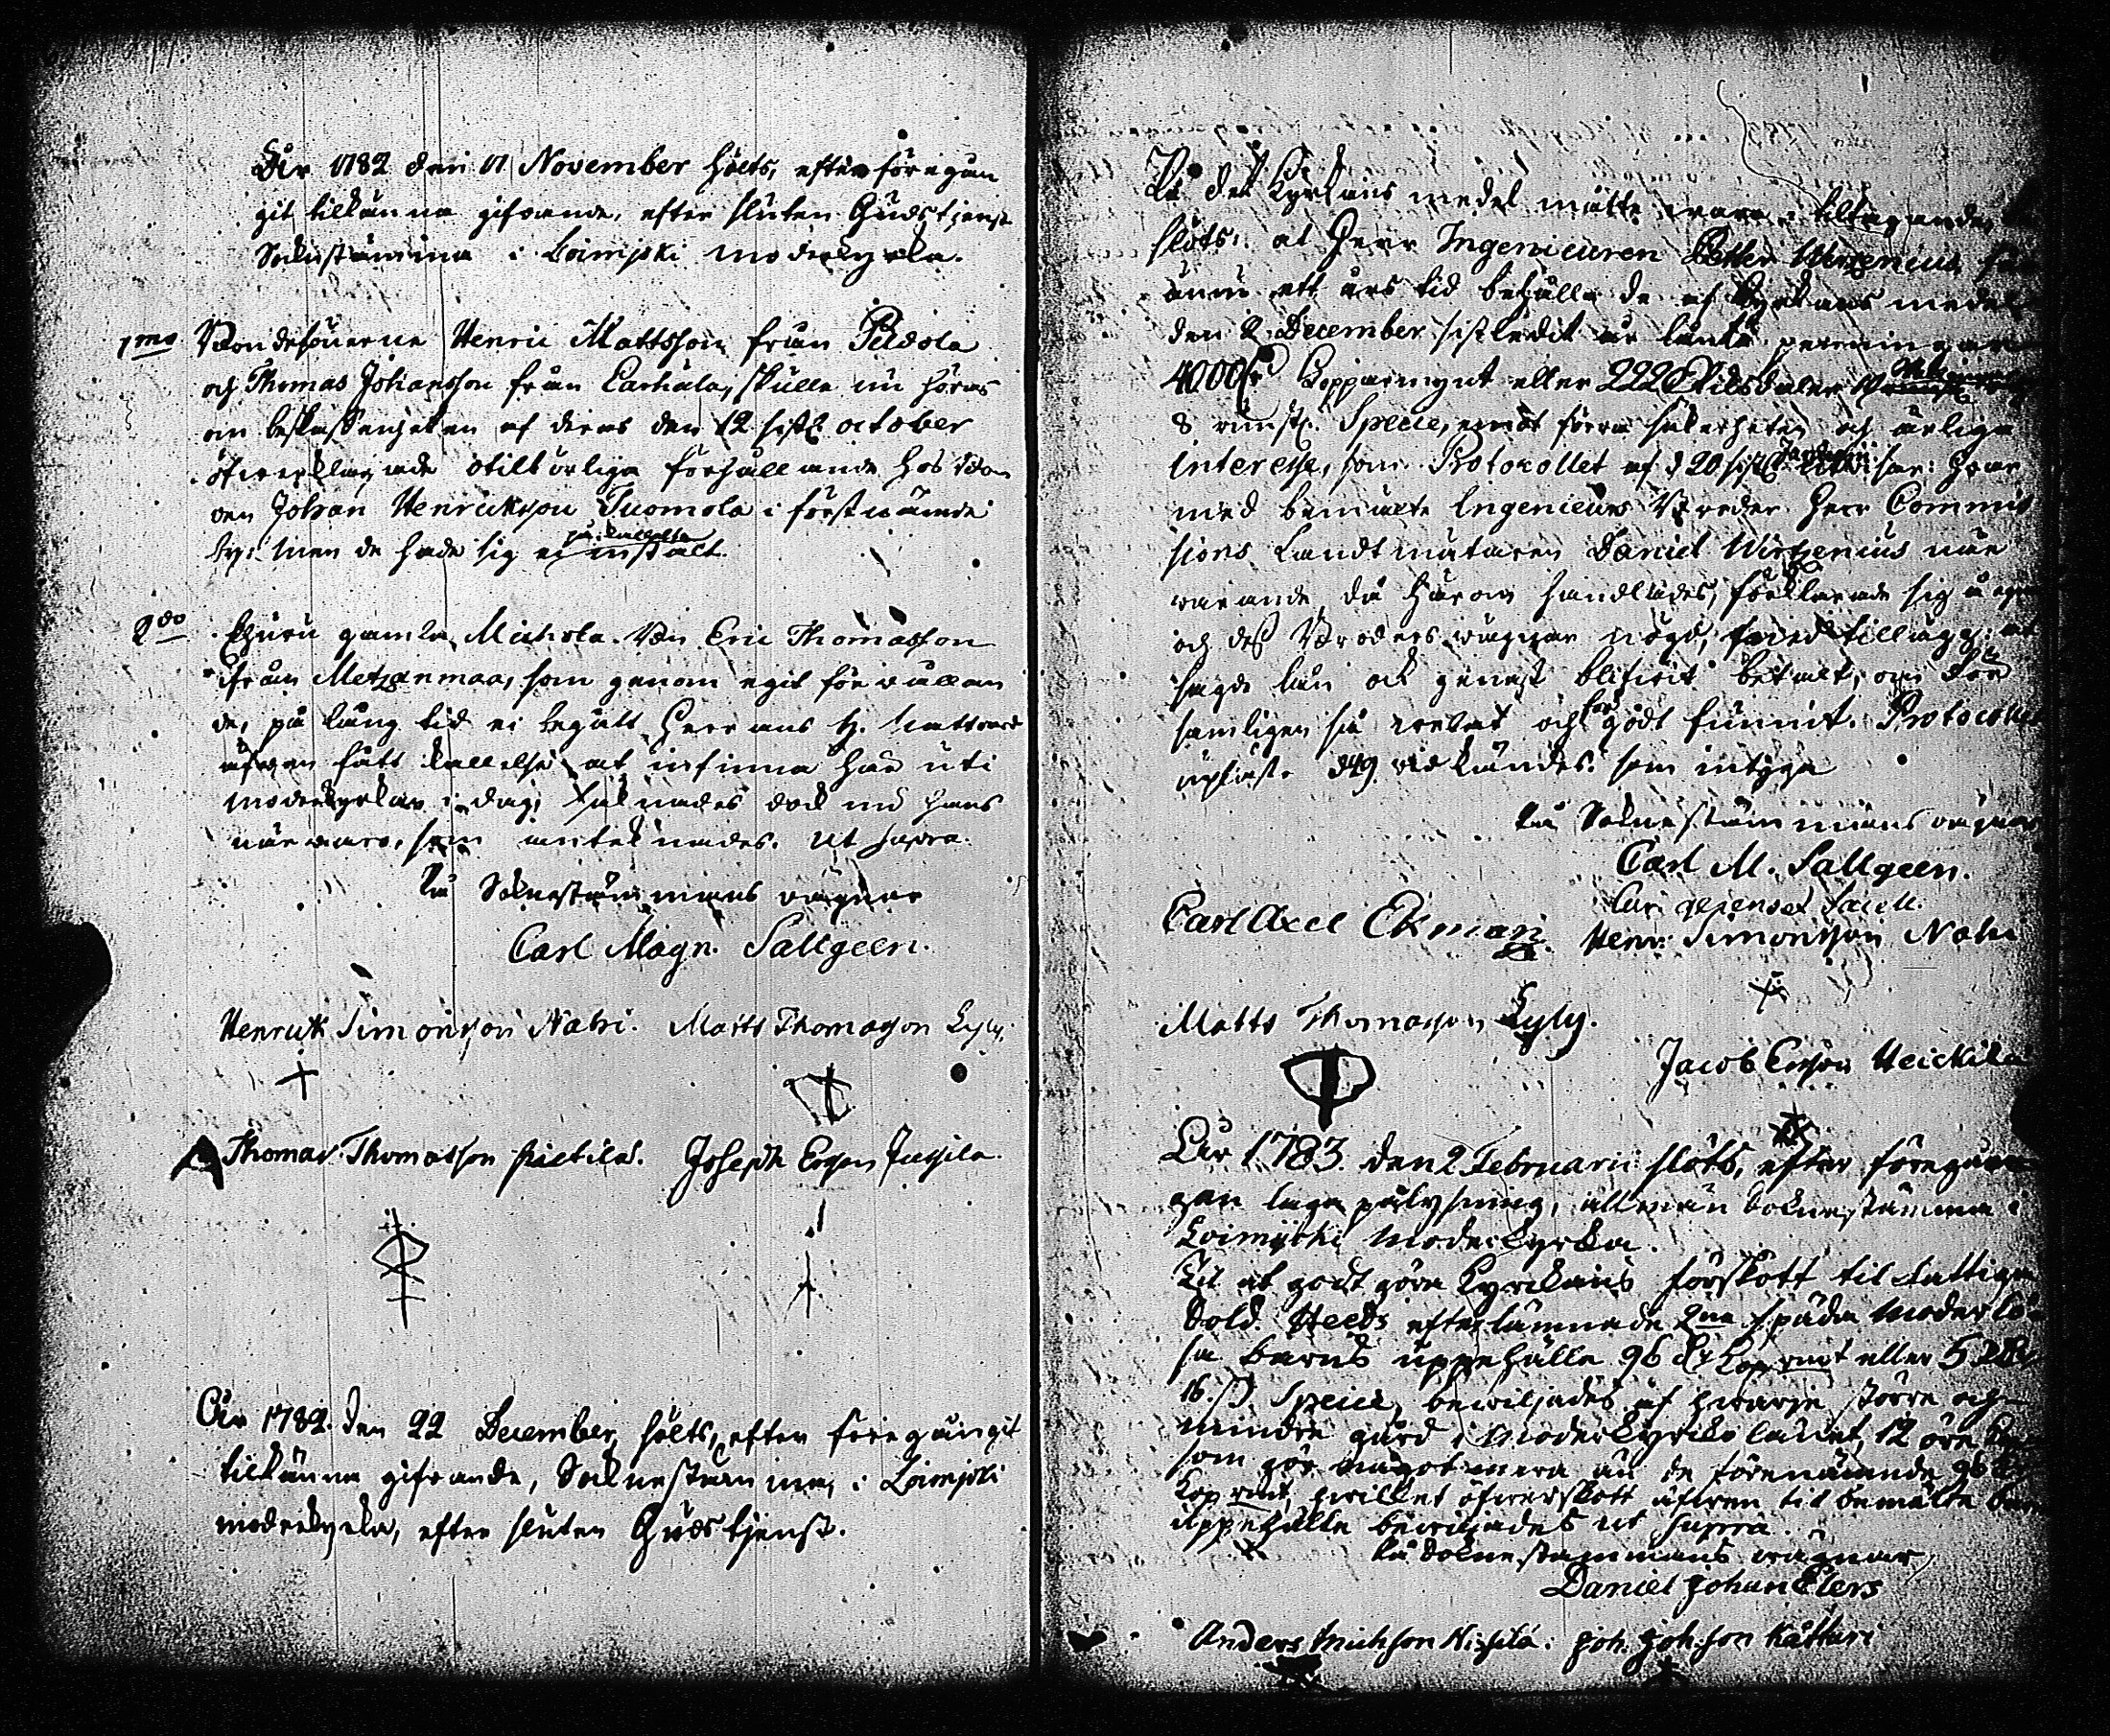 År 1782 den 17 November hölts, efter föregån
git tilkänna gifvande, efter sluten Gudstjenst
Soknestämma i Loimjoki moderkyrka.
1mo Bondesönerne Henric Mattsson från Peldola
och Thomas Johansson från Karhula, skulle nu höras
om beskaffenheten af deras den 12 sistl. october
öfverklagade otilbörliga förhållande hos Bon
den Johan Henriksson Tuomola i förstnämnde
by: men de hade sig ei instält.
på kallelse
2do Ehuru gamla Michola. Bon Eric Thomasson
ifrån Metzänmaa, som genom eget förvållan
de, på lång tid ei begått Herrans H. Nattvard
äfven fått kallelse at infinna sig uti
moderkyrkan i dag, saknades dock nu hans
närvaro, som antecknades. Ut supra.
På Soknestämmans vägnar
Carl Magn. Sallgeen.
Henrick Simonsson Nahi. Matts Thomasson Lyly.
Thomas Thomasson Pietilä. Joseph Ersson Jussila.
År 1782. den 22 December, hölts, efter föregångit
tilkänna gifvande, Soknestämma, i Loimjoki
moderkyrka, efter sluten Gudstjenst.
På det Kyrkans medel måtte vara i tiltagande,
slöts: at Herr Ingenieuren Petter Wirzenius får
ännu ett års tid behålla de af Kyrkans medel
den 2 December sistledit år länta penningar
4000 dr Kopparmynt eller 222 Riksdaler
8 runst. Specie, emot förra säkerheten och årliga
interesse, som Protocollet af d 20 sistl.
Januarii
med bemälte Ingenieurs Broder Herr Commis
sions Landtmätaren Daniel Wirzenius när
varande då härom handlades, förklarade sig å egna
och dess Broders vägnar nögd, med tillägg: at
sagde lån ock genast blifvit betalt, om För
samlingen så velat och för godt funnit. Protocollet
upläst och vidkändes. som intyga
På Soknestämmans vägnar
Carl M. Sallgeen.
Carl Axel Ekman. Henr: Simonsson Nahi
Matts Thomasson Lyly.
Jacob Ersson Heickilä
År 1783. den 2 Februarii slöts, efter föregån
gen laga pålysning, allmän Soknestämma i
Loimijoki Moderkyrka.
Til at godt göra Kyrckans förskott til Fattiga
Sold. Heeds efterlämnade 2ne späda moderlö-
sa barns uppehälle 96 dr Kop. mt eller 5 Rdr
16 s. Specie, beviljades af hvarje större och
mindre gård i Moderkyrko länet, 12 öre
som gör något mera än de förenämnde 96 dr
Kop. mt, hvilket öfverskott äfven til bemälte barns
uppehälle beviljades ut supra.
På Soknestämmans vägnar,
Daniel Johan Elers
Anders Michson Hissilä. Joh. Johsson Kåttari